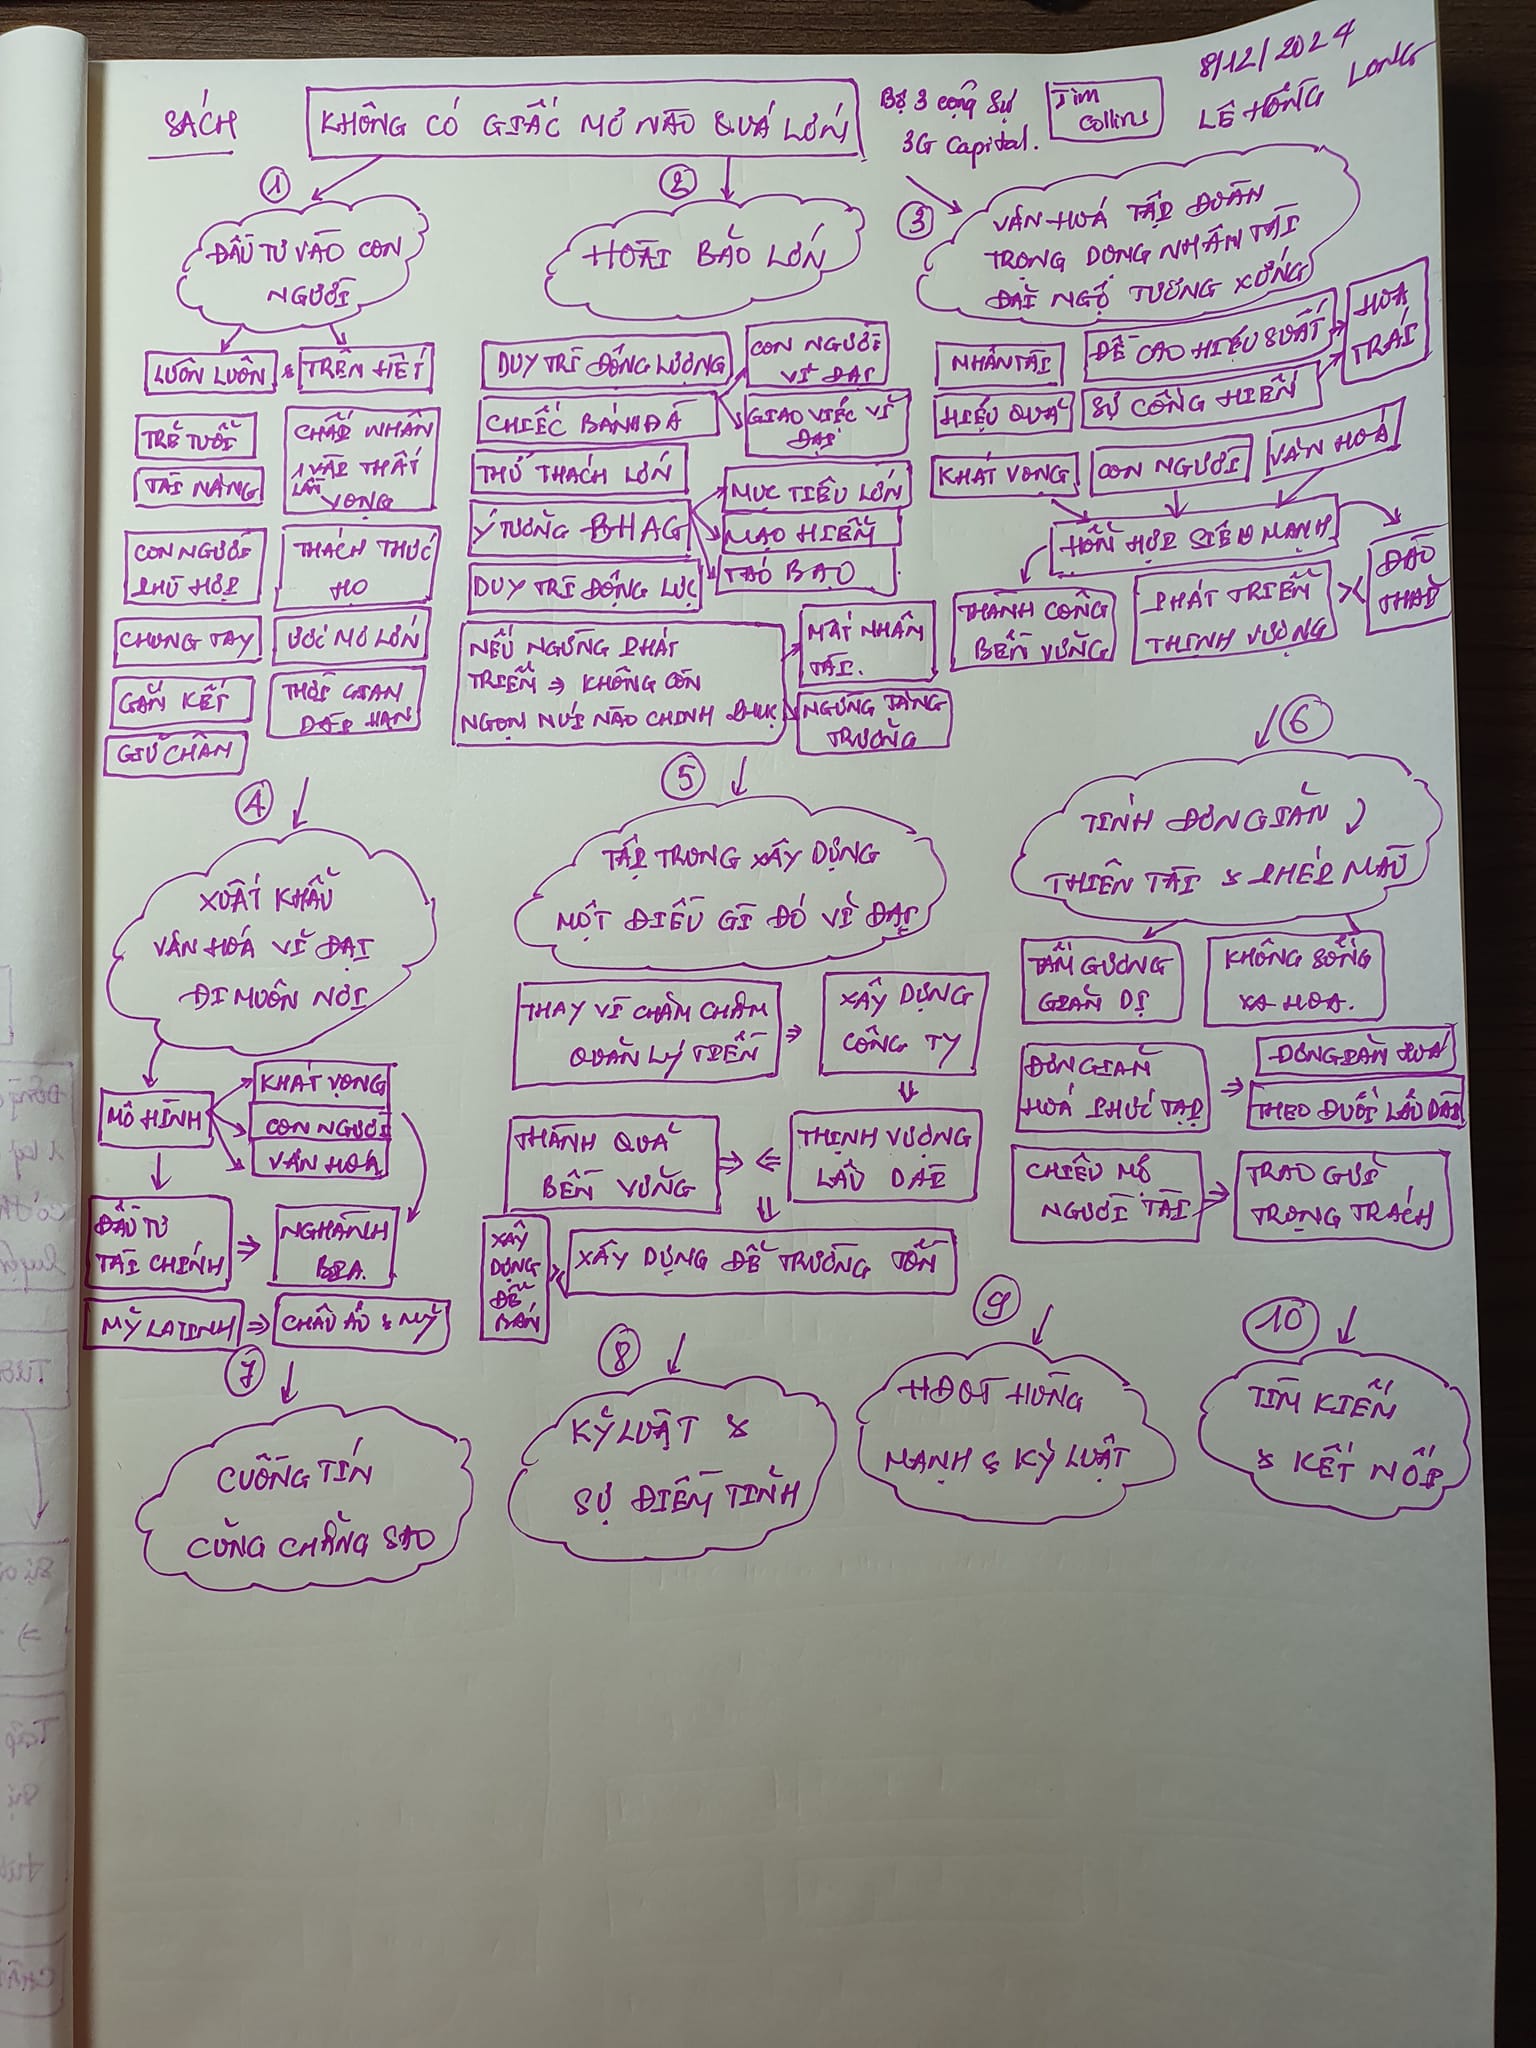 SÁCH
KHÔNG CÓ GIẤC MƠ NÀO QUÁ LỚN
Bộ 3 cộng sự
3G Capital.
Jim
Collins
8/12/2024
LÊ HỒNG LONG
1
ĐẦU TƯ VÀO CON
NGƯỜI
LUÔN LUÔN & TRÊN HẾT
TRẺ TUỔI
TÀI NĂNG
CON NGƯỜI
PHÙ HỢP
CHUNG TAY
GẮN KẾT
GIỮ CHÂN
CHẤP NHẬN
1 VÀI THẤT
LẦN
VỌNG
THÁCH THỨC
HỌ
ƯỚC MƠ LỚN
THỜI GIAN
DÀI HẠN
2
HOÀI BÃO LỚN
DUY TRÌ ĐỘNG LƯỢNG
CHIẾC BÁNH ĐÀ
CON NGƯỜI
VĨ ĐẠI
GIAO VIỆC VĨ
ĐẠI
THỬ THÁCH LỚN
Ý TƯỞNG BHAG
MỤC TIÊU LỚN
MẠO HIỂM
TÁO BẠO
DUY TRÌ ĐỘNG LỰC
NẾU NGỪNG PHÁT
TRIỂN ⇒ KHÔNG CÒN
NGỌN NÚI NÀO CHINH PHỤC
MẤT NHÂN
TÀI.
NGỪNG TĂNG
TRƯỞNG
3
VĂN HOÁ TẬP ĐOÀN
TRỌNG DỤNG NHÂN TÀI
ĐÃI NGỘ TƯƠNG XỨNG
NHÂN TÀI
ĐỀ CAO HIỆU SUẤT
HOA
TRÁI
HIỆU QUẢ
SỰ CỐNG HIẾN
KHÁT VỌNG
CON NGƯỜI
VĂN HOÁ
HỖN HỢP SIÊU MẠNH
THÀNH CÔNG
BỀN VỮNG
PHÁT TRIỂN
THỊNH VƯỢNG
><
ĐÀO
THẢI
4
XUẤT KHẨU
VĂN HOÁ VĨ ĐẠI
ĐI MUÔN NƠI
MÔ HÌNH
KHÁT VỌNG
CON NGƯỜI
VĂN HOÁ
ĐẦU TƯ
TÀI CHÍNH
⇒
NGHÀNH
BIA.
MỸ LATINH ⇒ CHÂU ÂU & MỸ
5
TẬP TRUNG XÂY DỰNG
MỘT ĐIỀU GÌ ĐÓ VĨ ĐẠI
THAY VÌ CHĂM CHĂM
QUẢN LÝ TIỀN
⇒
XÂY DỰNG
CÔNG TY
THÀNH QUẢ
BỀN VỮNG
THỊNH VƯỢNG
LÂU DÀI
XÂY
DỰNG
ĐỂ
BÁN
XÂY DỰNG ĐỂ TRƯỜNG TỒN
6
TÍNH ĐƠN GIẢN,
THIÊN TÀI & PHÉP MÀU
TẤM GƯƠNG
GIẢN DỊ
KHÔNG SỐNG
XA HOA.
ĐƠN GIẢN
HOÁ PHỨC TẠP
⇒
ĐƠN GIẢN HOÁ
THEO ĐUỔI LÂU DÀI
CHIÊU MỘ
NGƯỜI TÀI
⇒
TRAO GỬI
TRỌNG TRÁCH
7
CUỒNG TÍN
CŨNG CHẲNG SAO
8
KỶ LUẬT &
SỰ ĐIỀM TĨNH
9
HĐQT HÙNG
MẠNH & KỶ LUẬT
10
TÌM KIẾM
& KẾT NỐI